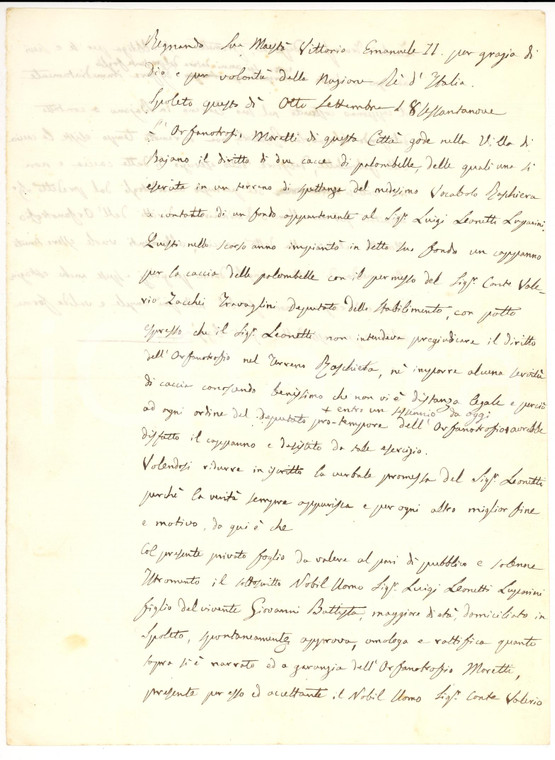 Regnando Sua Maestà Vittorio Emanuele II. per grazia di
Dio e per volontà della Nazione Rè d'Italia.
Spoleto questo dì Otto Settembre 18settantanove
L'Orfanotrofio Moretti di questa Città gode nella Villa di
Bajano il diritto di due caccie di palombelle, delle quali una si
esercita in un terreno di spettanza del medesimo Vocabolo
a contatto di un fondo appartenente al Sigr. Luigi Leonetti Luparini
Questi nello scorso anno impiantò in detto suo fondo un capanno
per la caccia delle palombelle con il permesso del Sigr. Conte Vale-
rio Zacchei Travaglini Deputato dello Stabilimento, con patto
espresso che il Sigr. Leonetti non intendeva pregiudicare il diritto
dell'Orfanotrofio nel Terreno, nè imporre alcuna servitù
di caccia conoscendo benissimo che non vi è distanza legale e perciò
+ entro un da oggi
ad ogni ordine del Deputato pro-tempore dell'Orfanotrofio + avrebbe
disfatto il capanno e desistito da tale esercizio.
Volendosi ridurre in iscritto la verbale promessa del Sigr. Leonetti
perchè la verità sempre apparisca e per ogni altro miglior fine
e motivo, da qui è che
Col presente privato foglio da valere al pari di pubblico e solenne
Istromento il sottoscritto Nobil Uomo Sigr. Luigi Leonetti Luparini
figlio del vivente Giovanni Battista, maggiore di età, domiciliato in
Spoleto, spontaneamente approva, omologa e rattifica quanto
sopra si è narrato ed a garanzia dell'Orfanotrofio Moretti,
presente per esso ed accettante il Nobil Uomo Sigr. Conte Valerio